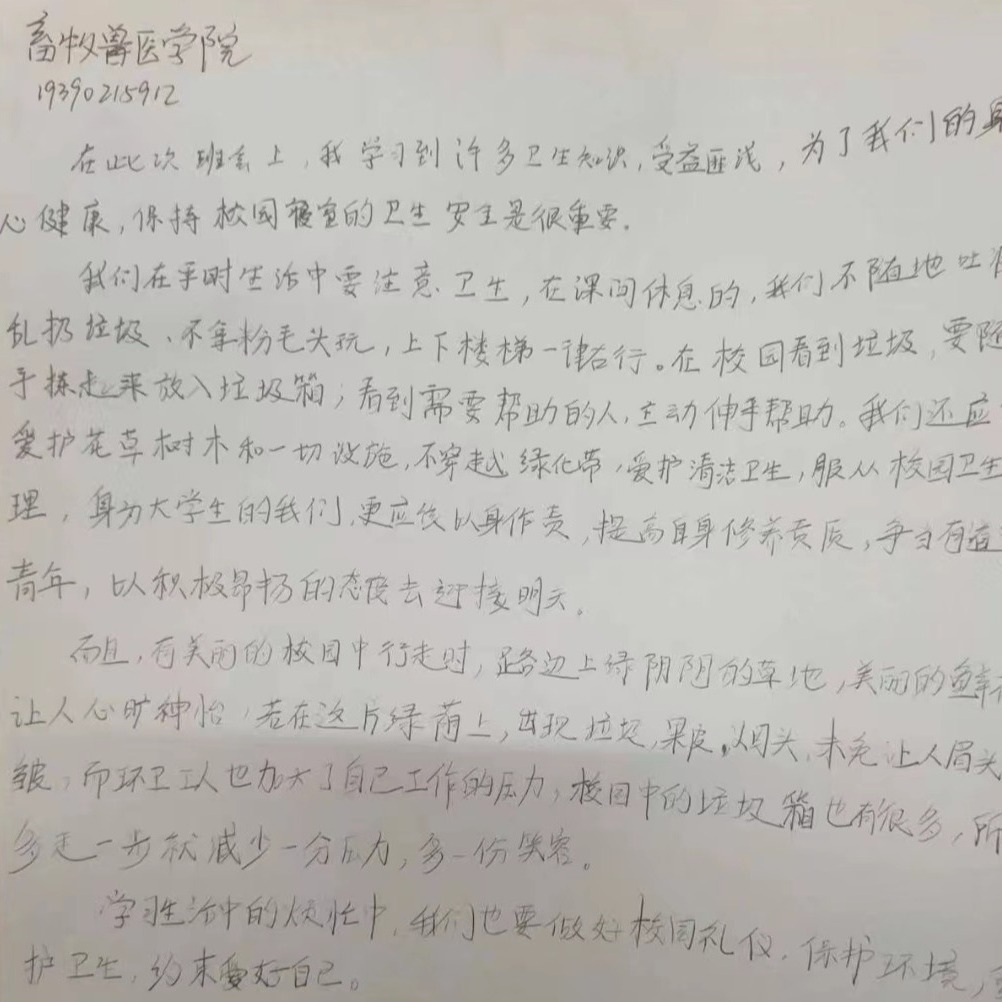 畜牧兽医学院
19390215912
在此次班会上，我学习到许多卫生知识，受益匪浅，为了我们的身
心健康，保持校园寝室的卫生安全是很重要。
我们在平时生活中要注意卫生，在课间休息的，我们不随地吐
乱扔垃圾、不拿粉毛头玩，上下楼梯一律右行。在校园看到垃圾，要随
手拣起来放入垃圾箱；看到需要帮助的人，主动伸手帮助。我们还应
爱护花草树木和一切设施，不穿越绿化带，爱护清洁卫生，服从校园卫生
理，身为大学生的我们，更应该以身作责，提高自身修养贡质，争当有
青年，以积极昂扬的态度去迎接明天。
而且，有美丽的校园中行走时，路边上绿阴阴的草地，美丽的鲜
让人心旷神怡，若在这片绿荫上，出现垃圾，果皮，烟头，未免让人眉头
皱，而环卫工人也加大了自己工作的压力，校园中的垃圾箱也有很多，所
多走一步就减少一分压力，多一份笑容。
学习生活中的烦忙中，我们也要做好校园礼仪，保护环境，
护卫生，约束爱好自己。